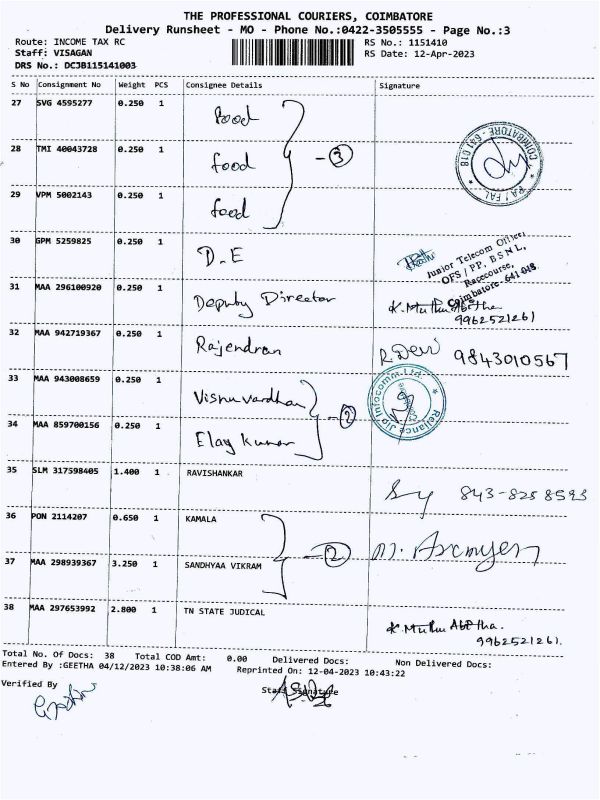 THE PROFESSIONAL COURIERS, COIMBATORE
Delivery Runsheet - MO - Phone No.:0422-3505555 - Page No.:3
Route: INCOME TAX RC RS No.: 1151410
Staff: VISAGAN RS Date: 12-Apr-2023
DRS No.: DCJB115141003
S No Consignment No Weight PCS Consignee Details Signature
27 SVG 4595277 0.250 1 food
28 TMI 40043728 0.250 1 food - 3 COIMBATORE - 641 018
29 VPM 5002143 0.250 1 food
30 GPM 5259825 0.250 1 D.E
Junior Telecom Officer
OFS / PP, B S N L,
Racecourse,
Coimbatore- 641 018.
31 MAA 296100920 0.250 1 Deputy Director K. Muthu Abetha
9962521261
32 MAA 942719367 0.250 1 Rajendran R. Devi 9843010567
33 MAA 943008659 0.250 1 Visnuvardhan Reliance Jio Infocomm Ltd.
- 2
34 MAA 859700156 0.250 1 Elay Kumar
35 SLM 317598405 1.400 1 RAVISHANKAR 843-8258593
36 PON 2114207 0.650 1 KAMALA
- 2
37 MAA 298939367 3.250 1 SANDHYAA VIKRAM
38 MAA 297653992 2.800 1 TN STATE JUDICAL K. Muthu Abetha.
9962521261.
Total No. Of Docs: 38 Total COD Amt: 0.00 Delivered Docs: Non Delivered Docs:
Entered By :GEETHA 04/12/2023 10:38:06 AM Reprinted On: 12-04-2023 10:43:22
Verified By Staff Signature